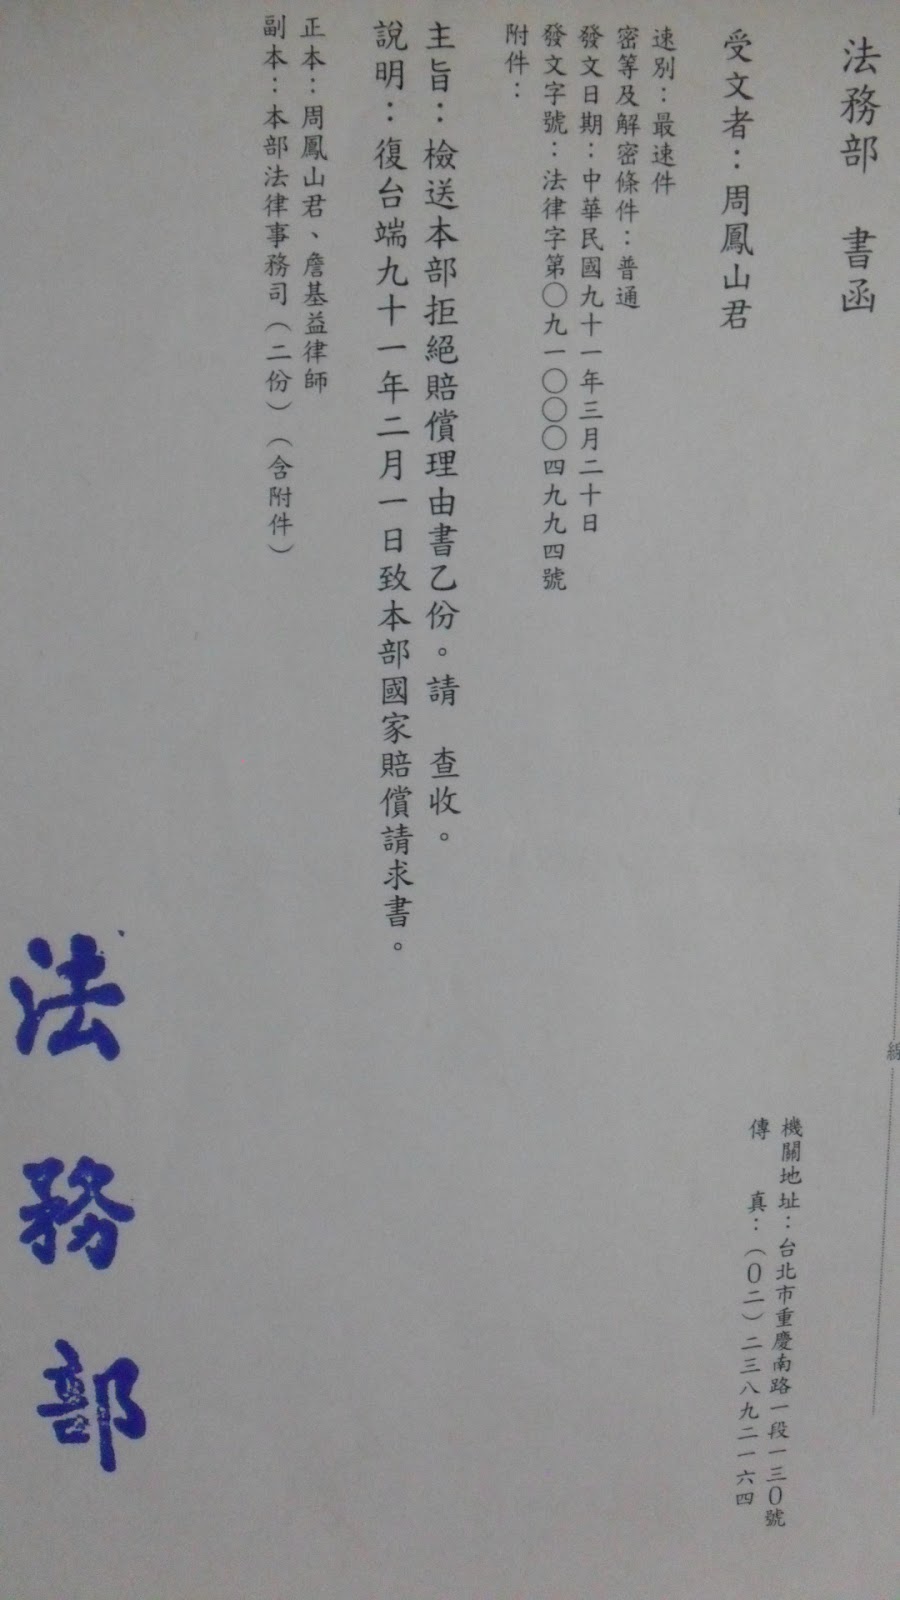 線
法務部　書函
機關地址：台北市重慶南路一段一三0號
傳　　真：（0二）二三八九二一六四
受文者：周鳳山君
速別：最速件
密等及解密條件：普通
發文日期：中華民國九十一年三月二十日
發文字號：法律字第○九一○○○四九九四號
附件：
主旨：檢送本部拒絕賠償理由書乙份。請　查收。
說明：復台端九十一年二月一日致本部國家賠償請求書。
正本：周鳳山君、詹基益律師
副本：本部法律事務司（二份）（含附件）
法務部